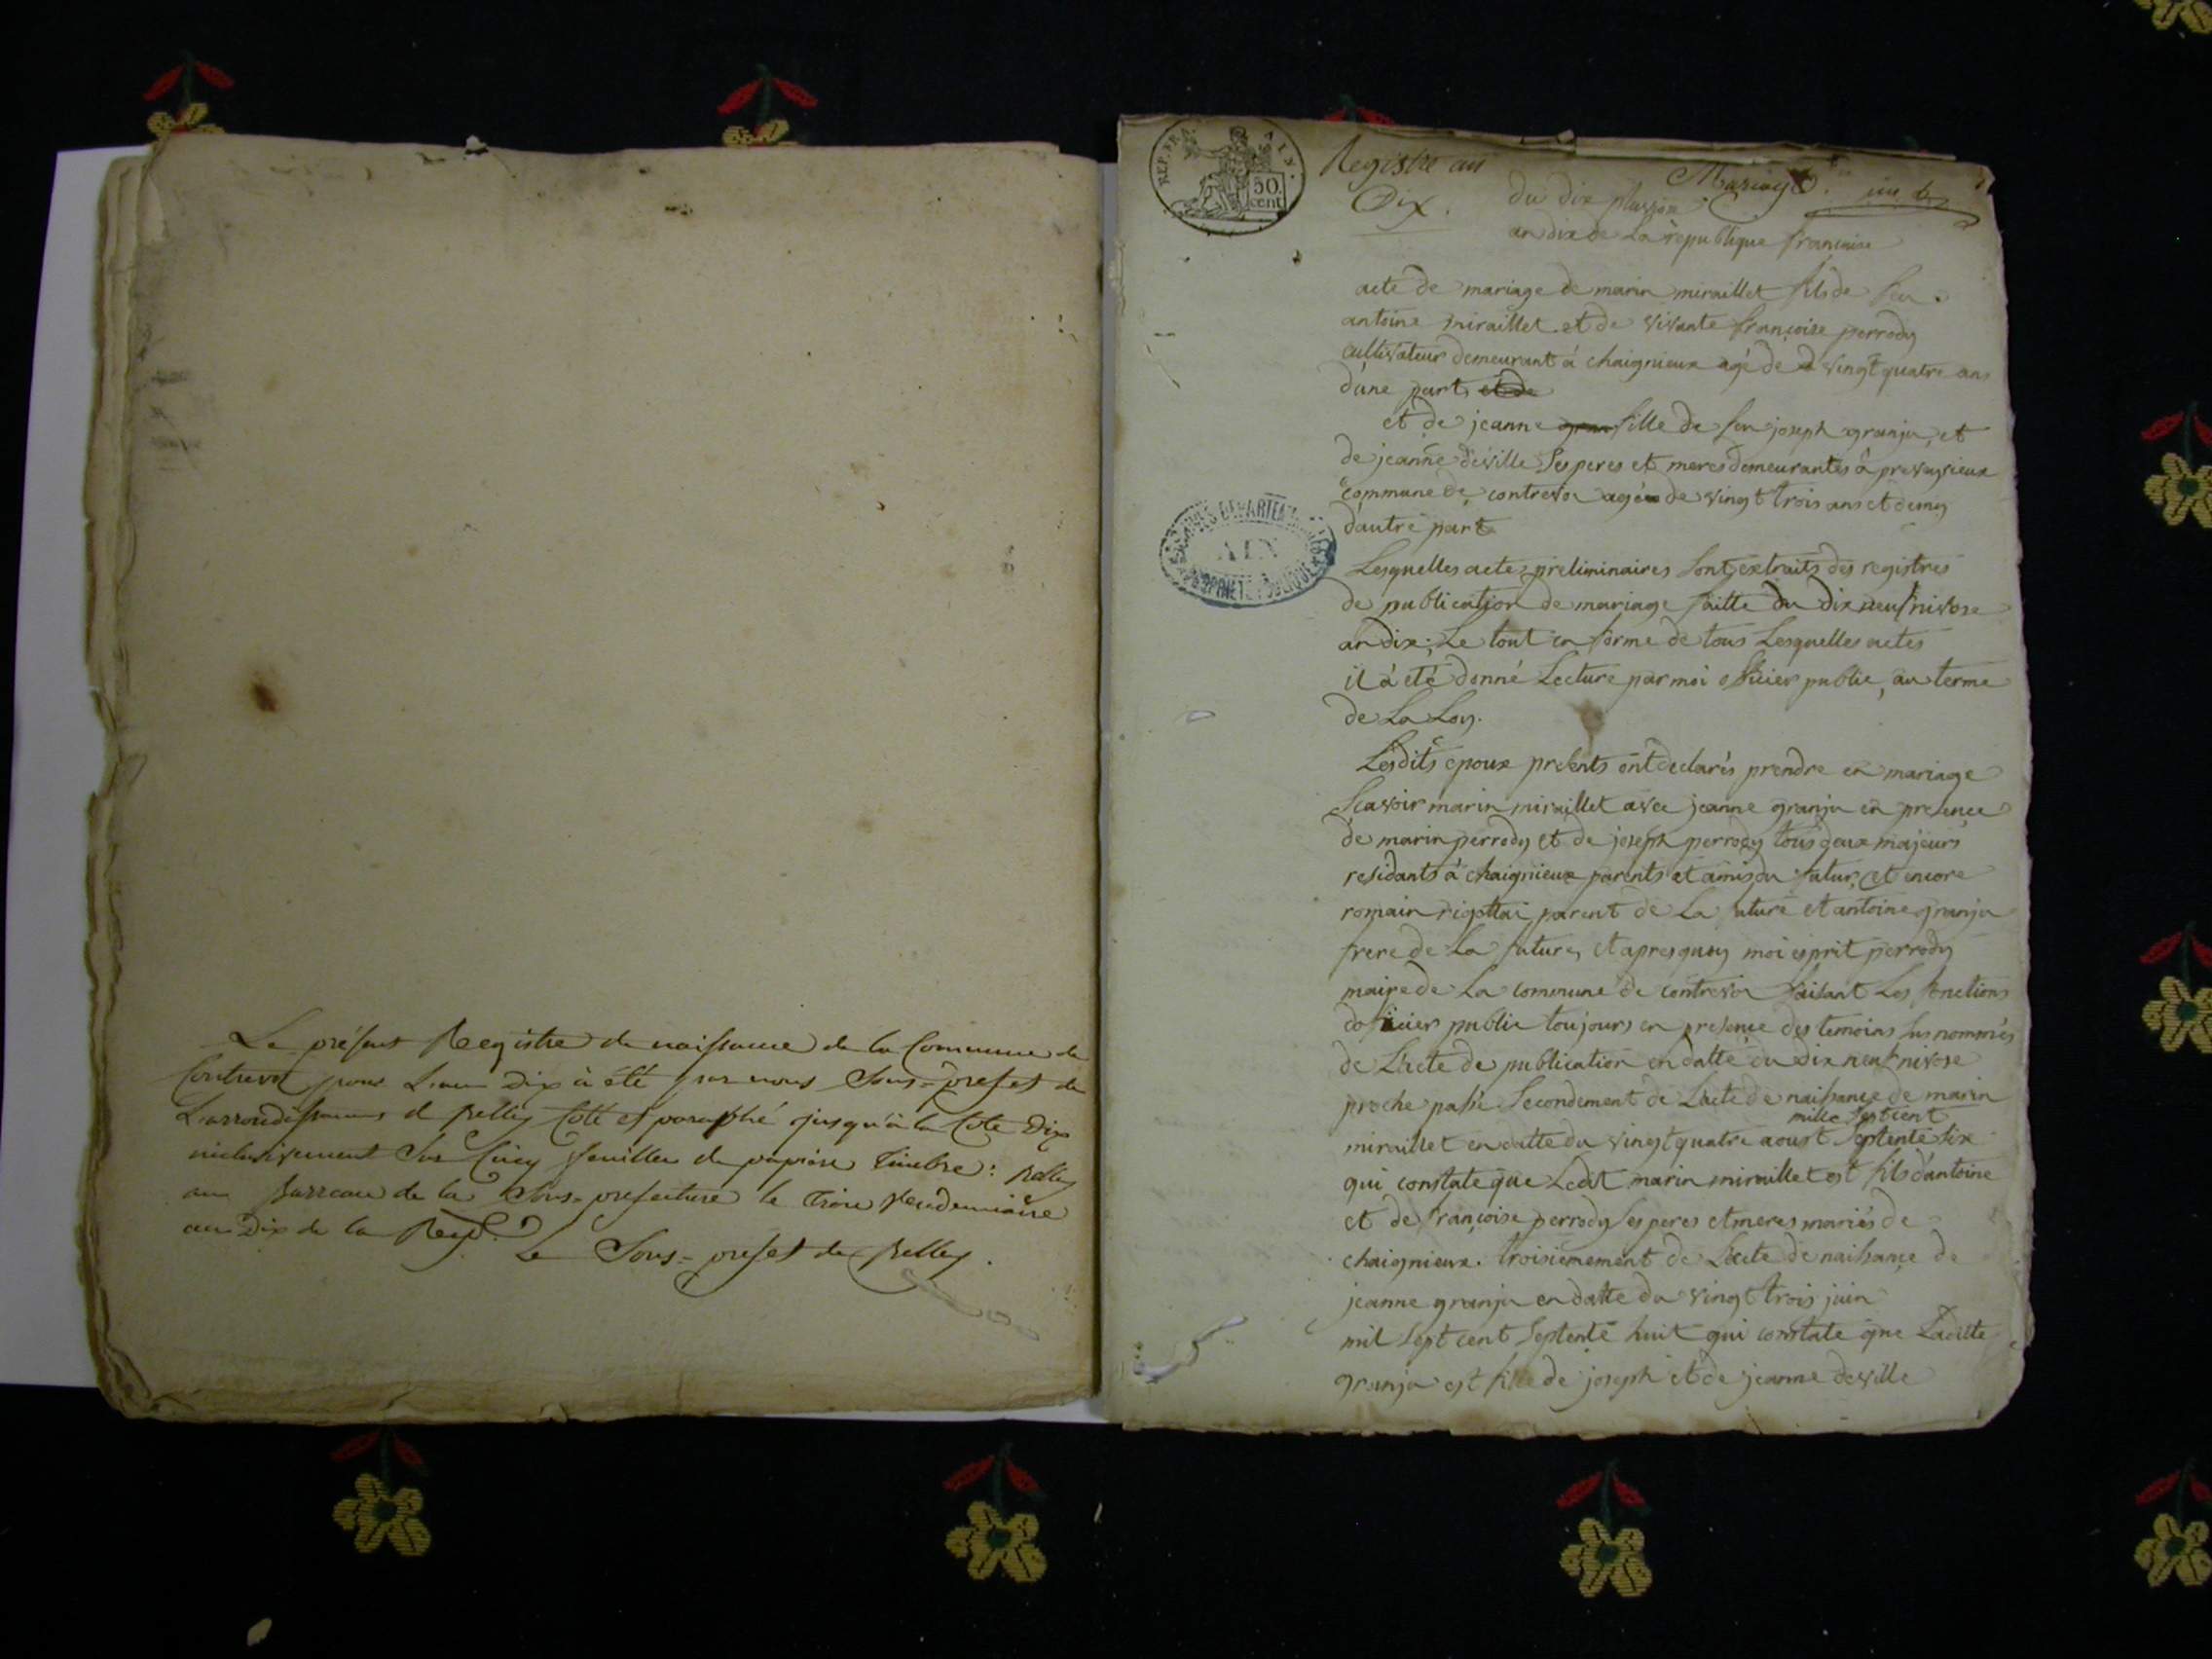 Le présent Registre de naissance de la Commune de
Contrevoz pour l'an Dix à été par nous Sous-prefet de
L'arrondissement de Belley Coté et paraphé jusqu'à la Cote Dix
inclusivement Sur Cinq feuilles de papier Timbré : Belley
au Bureau de la Sous-prefecture le Trois Vendemiaire
an Dix de la Rep.
Le Sous-prefet de Belley.
REP. FR
50.
cent
Registre an
Dix.
Mariage.
un
du dix pluviose
an dix de La republique francaise
acte de mariage de marin miraillet fils de feu
antoine miraillet et de vivante françoise perrody
cultivateur demeurant à chaignieux agé de vingt quatre ans
d'une part, et de
et de jeanne gran fille de feu joseph granju, et
de jeanne deville Ses peres et meres demeurantes à preveysieux
commune de contrevoz agée de vingt trois ans et demy
d'autre part
ARCHIVES DEPARTEMENTALES
AIN
PROPRIETE PUBLIQUE
Lesquelles actes preliminaires Sont extraits des registres
de publication de mariage faitte du dix neuf nivose
an dix; Le tout en forme de tous Lesquelles actes
il à été donné Lecture par moi officier public, au terme
de La Loy.
Lesdits epoux presents ont declarés prendre en mariage
Scavoir marin miraillet avec jeanne granju en presence
de marin perrody et de joseph perrody tous deux majeurs
residants à chaignieux parents et amis du futur, et encore
romain rigottai parent de La future et antoine granju
frere de La future, et apres quoy moi esprit perrody
maire de La commune de contrevoz faisant Les fonctions
dofficier public toujours en presence des temoins Sus nommés
de L'acte de publication en datte du dix neuf nivose
proche passé Secondement de L'acte de naissance de marin
mille Sept cent
miraillet en datte du vingt quatre aoust Septente Six
qui constate que Ledit marin miraillet est fils d'antoine
et de françoise perrody Ses peres et meres mariés de
chaignieux. troisiemement de L'acte de naissance de
jeanne granju en datte du vingt trois juin
mil Sept cent Septente huit qui constate que Laditte
granju est fille de joseph et de jeanne deville